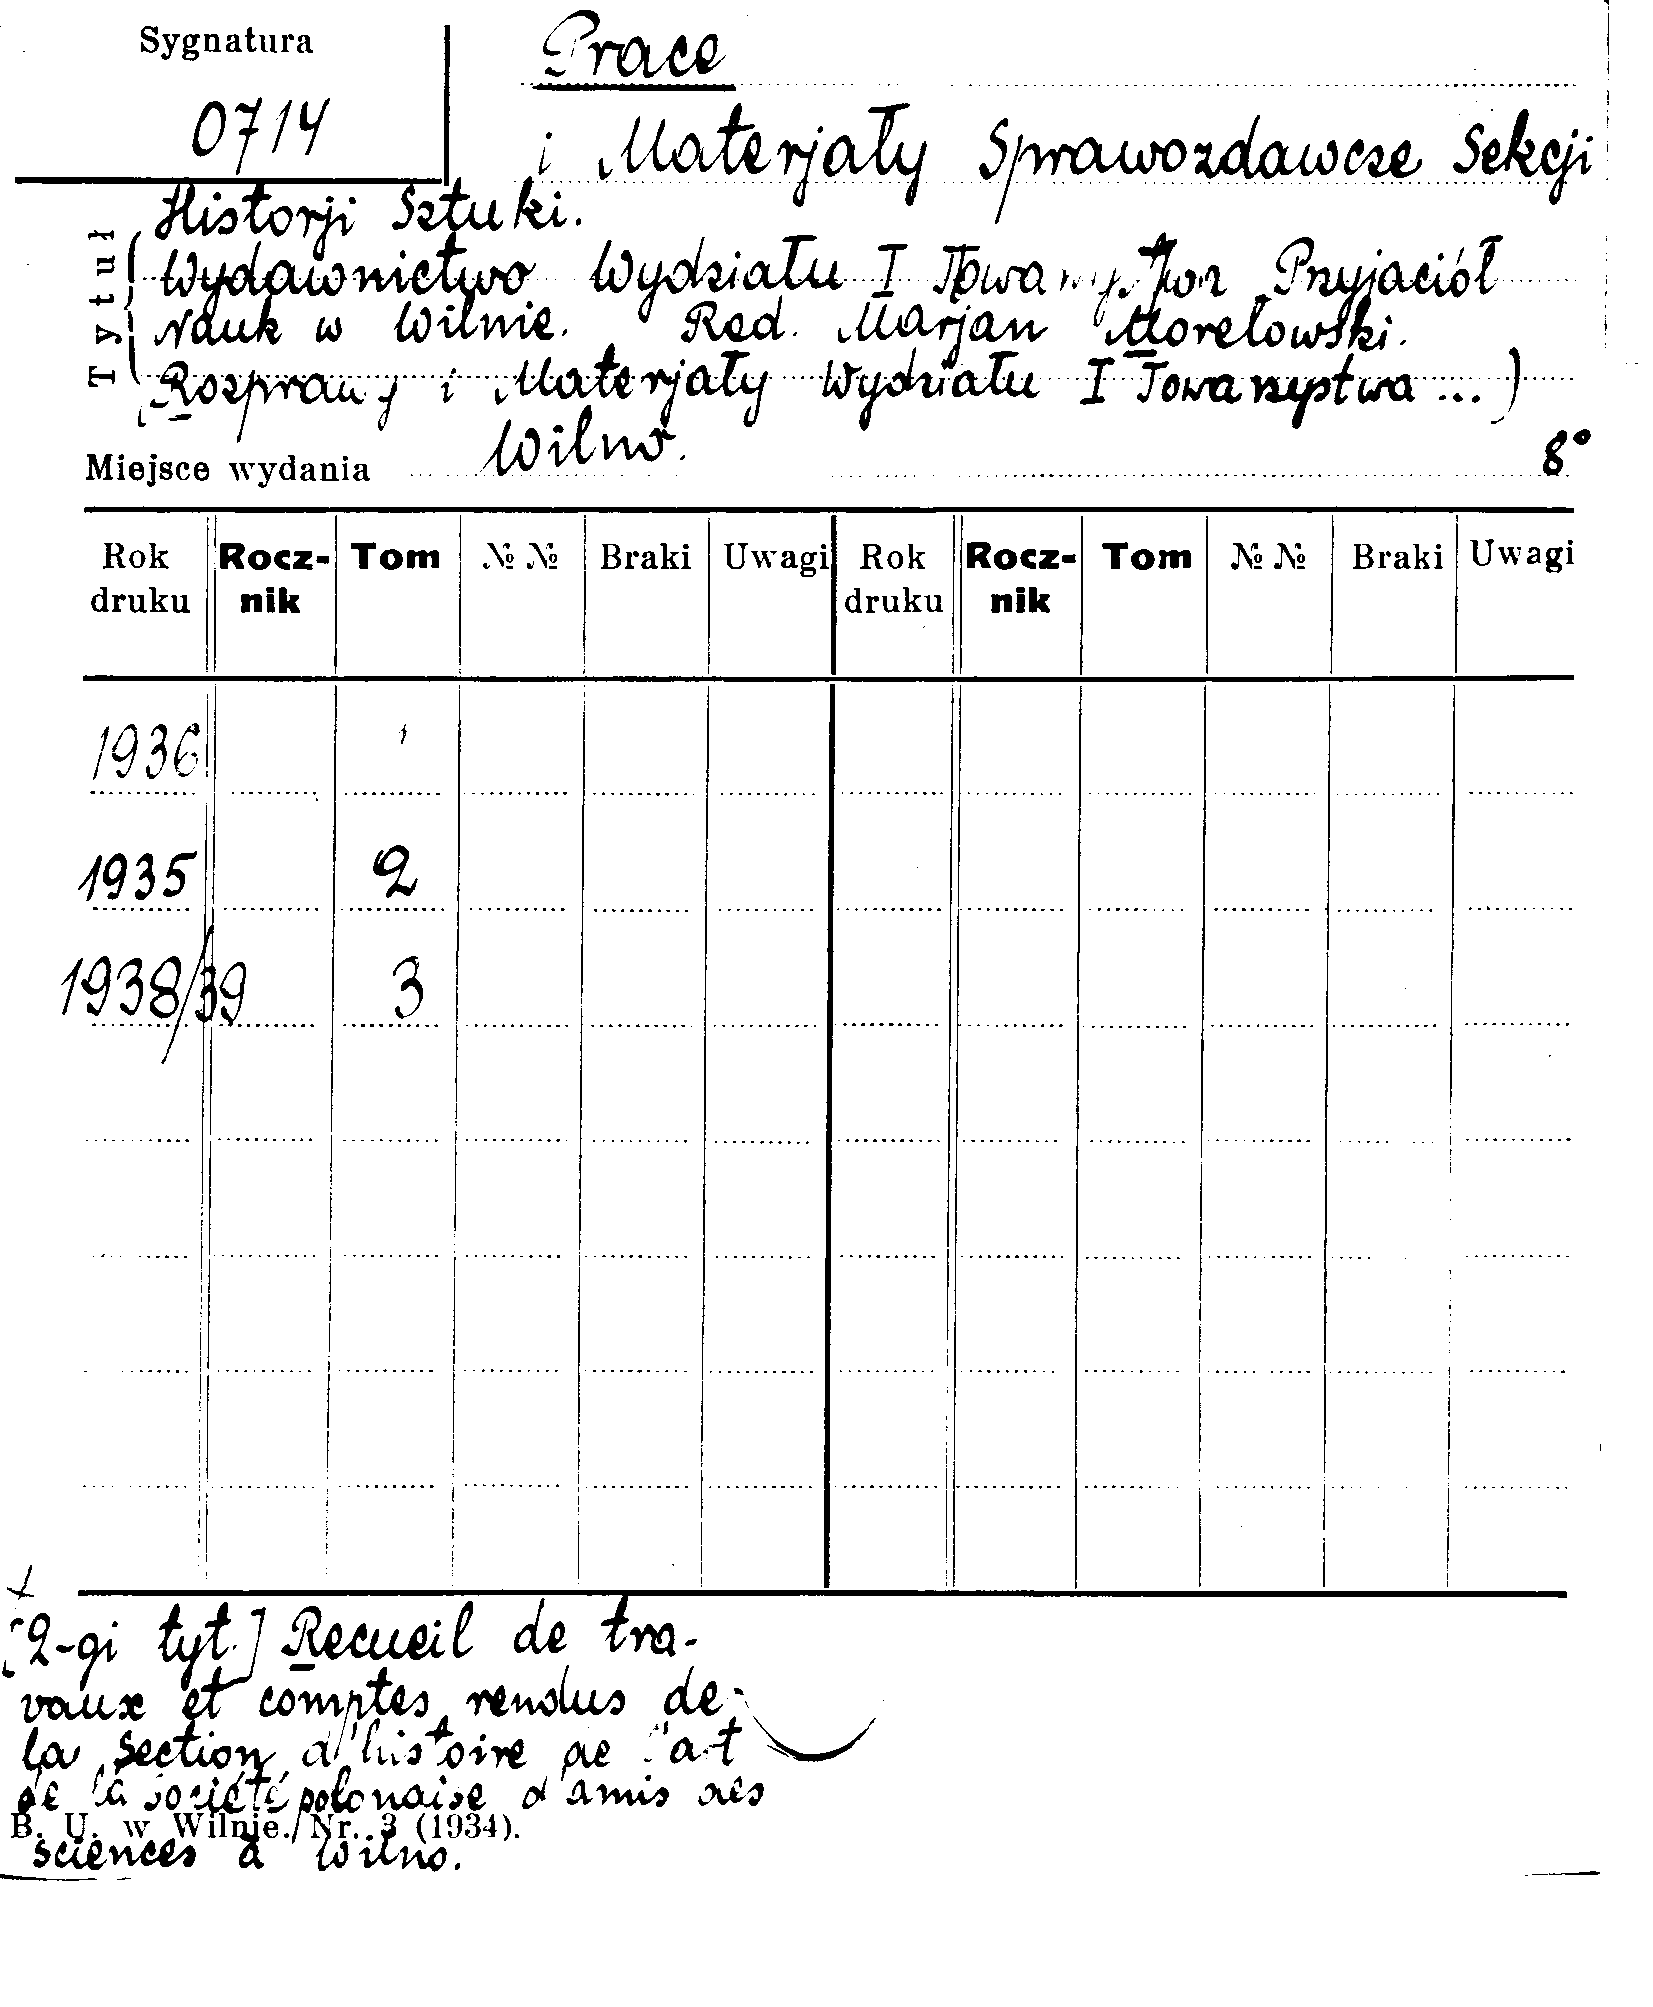 Sygnatura
0714
Prace
i Materjały Sprawozdawcze Sekcji
Historji Sztuki.
Tytuł
Wydawnictwo Wydziału I Towarzystwa Przyjaciół
Nauk w Wilnie. Red. Marjan Morelowski.
(Rozprawy i Materjały Wydziału I Towarzystwa ...)
Miejsce wydania Wilno. 8°
Rok druku Rocz-nik Tom № № Braki Uwagi Rok druku Rocz-nik Tom № № Braki Uwagi
1936
1935 2
1938/39 3
[2-gi tyt.] Recueil de tra-
vaux et comptes rendus de
la Section d'histoire de l'art
de la Société polonaise d'amis des
B. U. w Wilnie. Nr. 3 (1934).
sciences à Wilno.